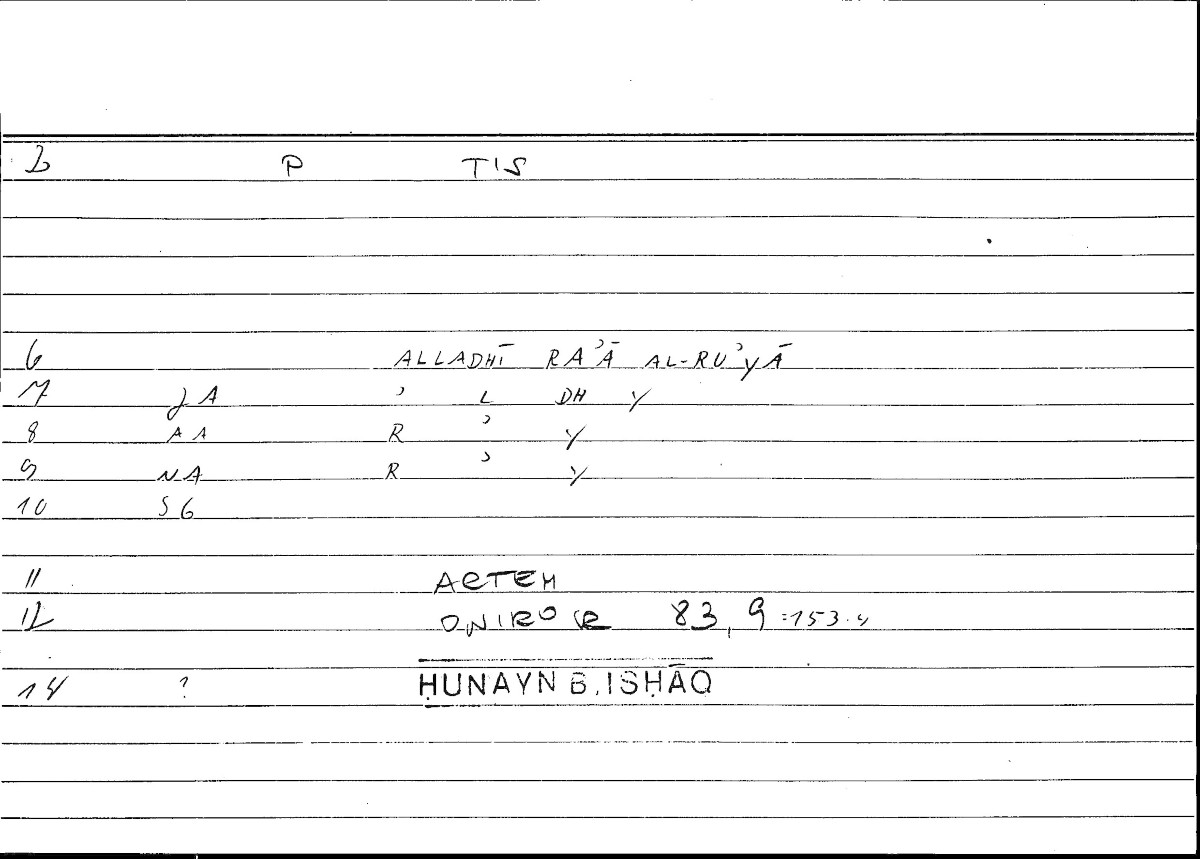 2 P TIS
6 ALLADHĪ RAʾĀ AL-RUʾYĀ
7 JA ʾ L DH Y
8 AA R ʾ Y
9 NA R ʾ Y
10 SG
11 ARTEM
12 ONIROCR 83,9 =153.4
14 ? ḤUNAYN B. ISḤĀQ